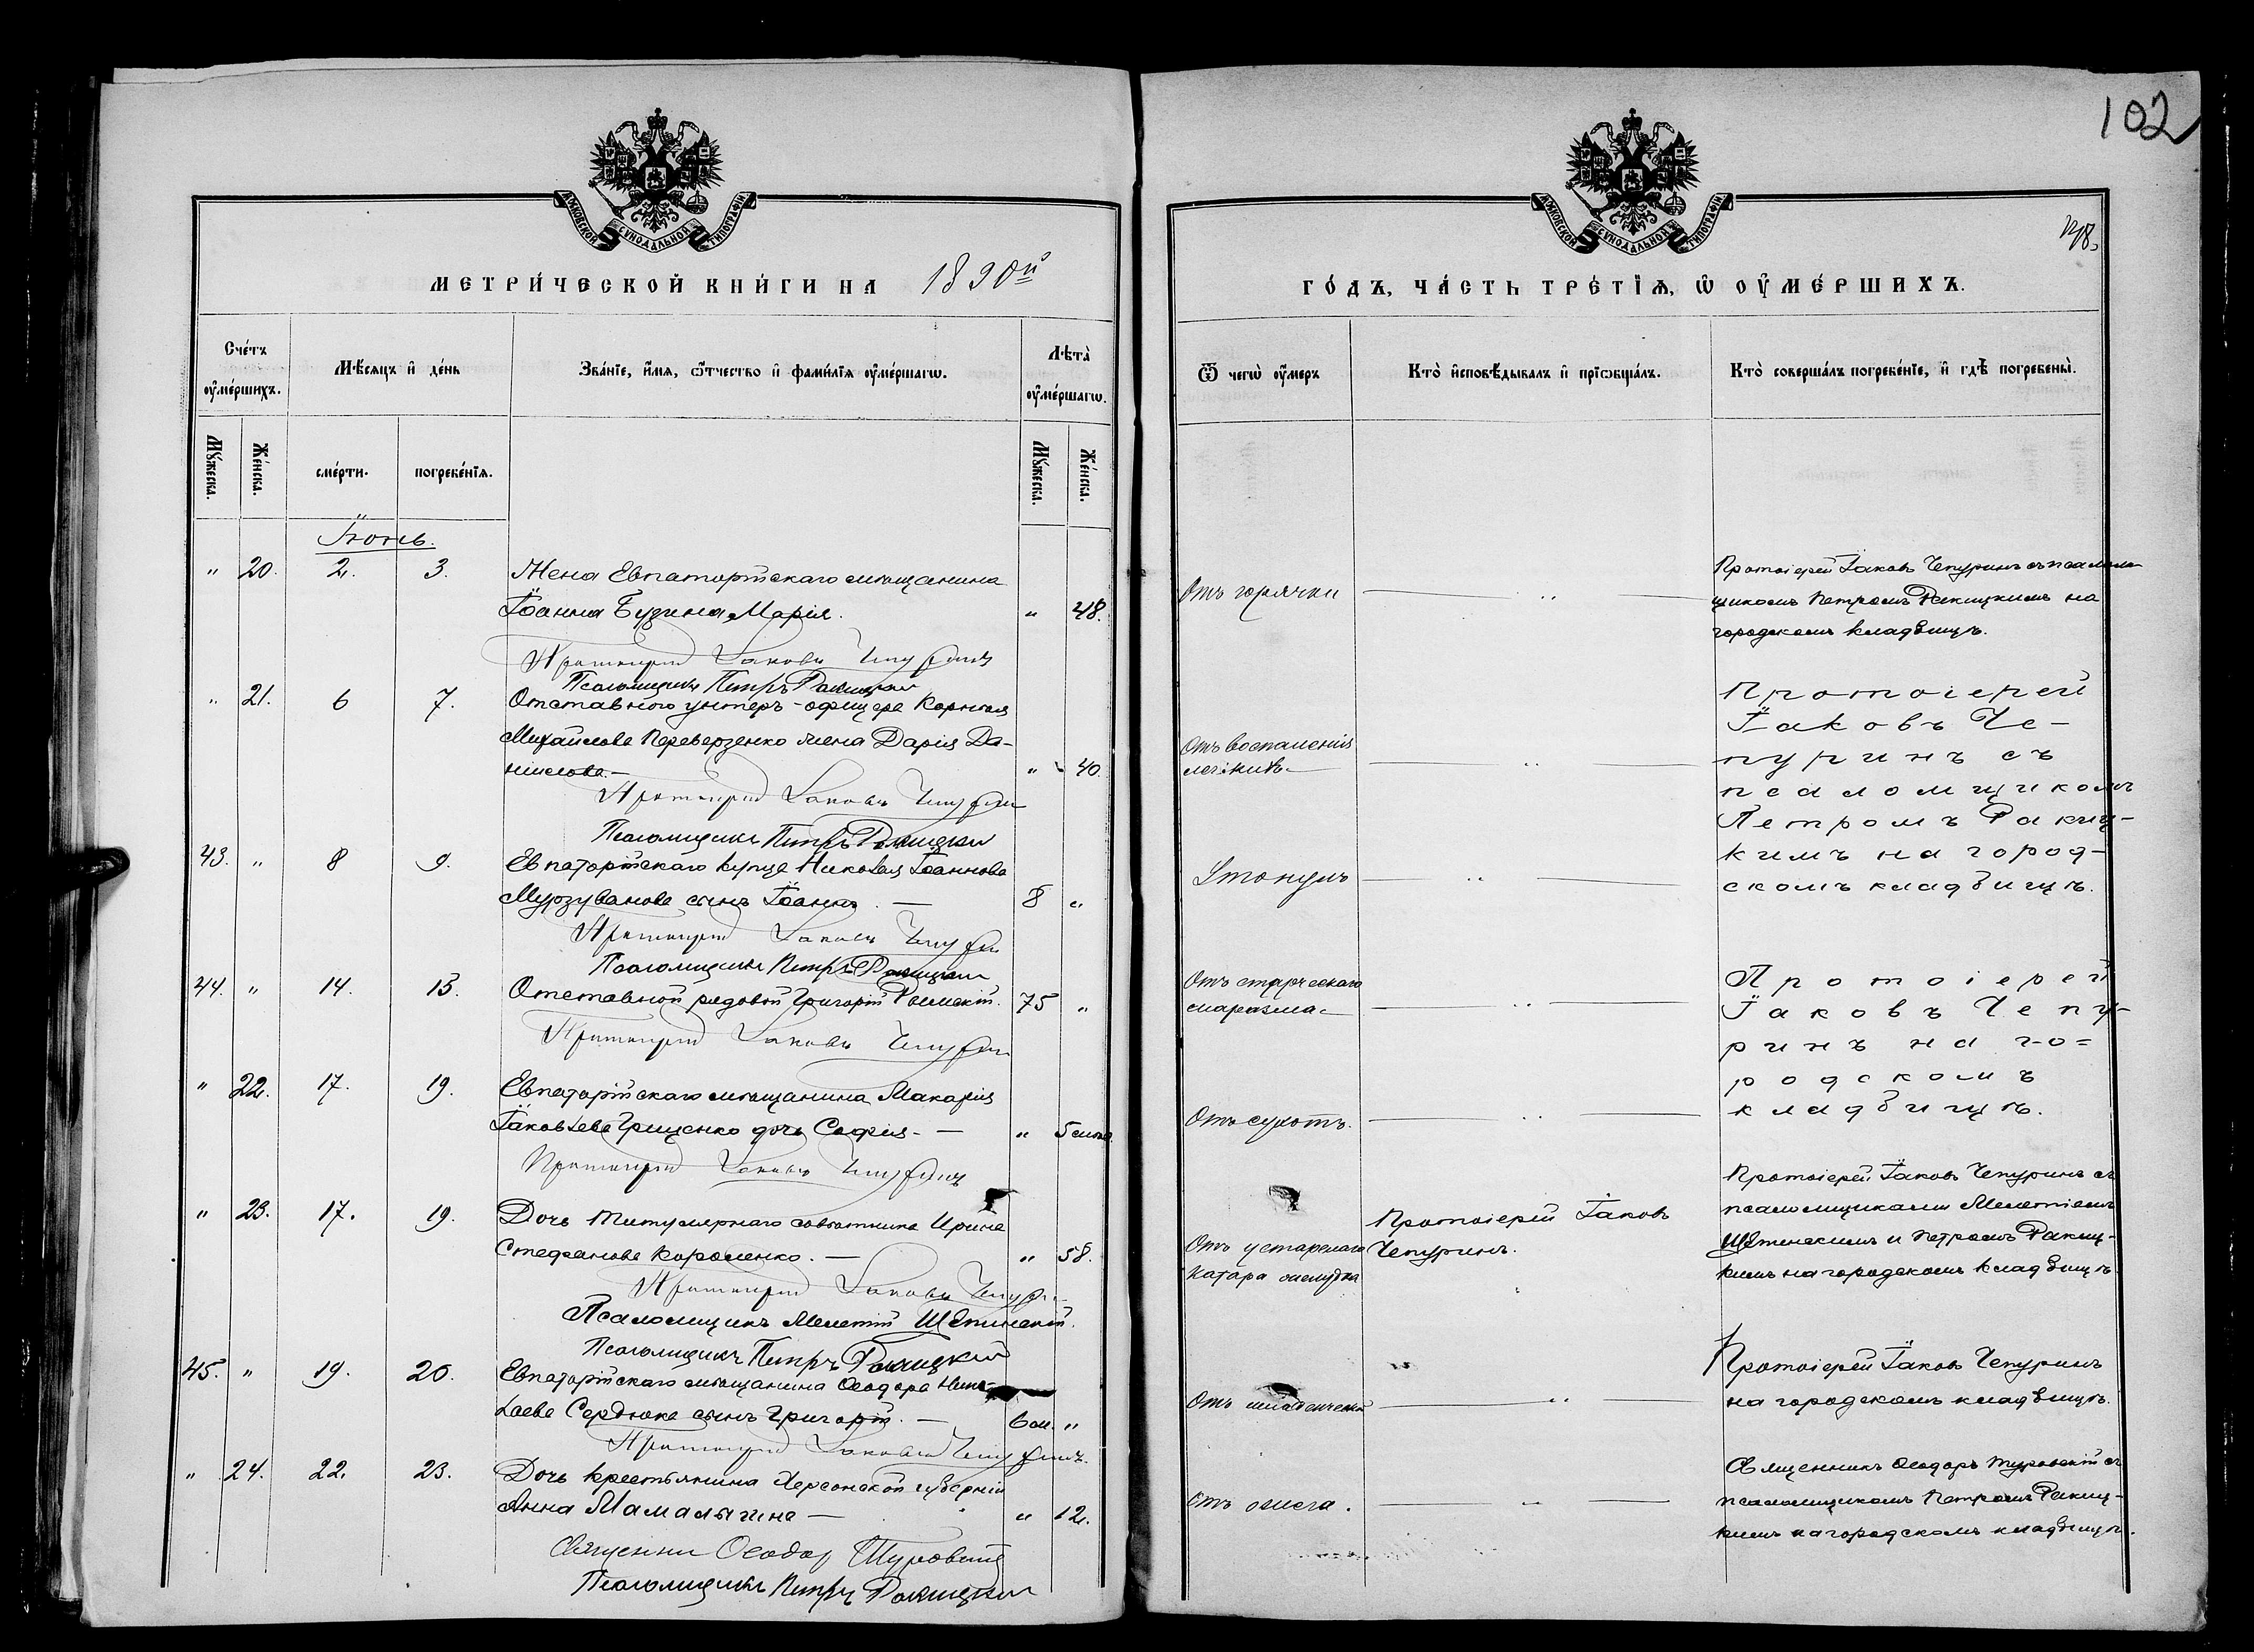 102
МОСКОВСКОЙ СѴНОДАЛЬНОЙ ТИПОГРАФІИ
МЕТРИ́ЧЕСКОЙ КНИ́ГИ НА 1890й
Сче́тъ ᲂу҆ме́ршихъ.
Мѣ́сяцъ и҆ де́нь
Зва́нїе, и҆́мѧ, ѻ҆́тчество и҆ фами́лїѧ ᲂу҆ме́ршагѡ.
Лѣ́та ᲂу҆ме́ршагѡ.
Мꙋ́жеска.
Же́нска.
сме́рти.
погребе́нїѧ.
Мꙋ́жеска.
Же́нска.
Іюнь.
" 20. 2. 3. Жена Евпаторійскаго мѣщанина
Іоанна Бузина Марія. " 48.
Протоіерей Іаковъ Чепуринъ
Псаломщикъ Петръ Ракицкій
" 21. 6 7. Отставного унтеръ-офицера Корнилія
Михайлова Переверзенко жена Дарія Да-
нилова.— " 40.
Протоіерей Іаковъ Чепуринъ
Псаломщикъ Петръ Ракицкій
43. " 8 9. Евпаторійскаго купца Николая Іоаннова
Мурзуванова сынъ Іоаннъ. — 8 "
Протоіерей Іаковъ Чепуринъ
Псаломщикъ Петръ Ракицкій
44. " 14. 15. Отставной рядовой Григорій 75 "
Протоіерей Іаковъ Чепуринъ
" 22. 17. 19. Евпаторійскаго мѣщанина Макарія
Іаковлева Гриценко дочь Софія. — " 5 мѣс.
Протоіерей Іаковъ Чепуринъ
" 23. 17. 19. Дочь титулярнаго совѣтника Ирина
Стефанова Короленко. — " 58.
Протоіерей Іаковъ Чепуринъ
Псаломщикъ Мелетій Щетинскій.
Псаломщикъ Петръ Ракицкій
45. " 19. 20. Евпаторійскаго мѣщанина Ѳеодора Нико-
лаева Сердюка сынъ Григорій. — 6 м. "
Протоіерей Іаковъ Чепуринъ.
" 24. 22. 23. Дочь крестьянина Херсонской губерніи
Анна Мамалыгина — " 12.
Священникъ Ѳеодоръ Туровскій
Псаломщикъ Петръ Ракицкій
МОСКОВСКОЙ СѴНОДАЛЬНОЙ ТИПОГРАФІИ
ГО́ДЪ, ЧА́СТЬ ТРЕ́ТЇѦ, Ѡ҆ ОУ҆МЕ́РШИХЪ.
Ѿ чегѡ̀ ᲂу҆́меръ
Кто̀ и҆сповѣ́дывалъ и҆ прїѡбща́лъ.
Кто̀ соверша́лъ погребе́нїе, и҆ гдѣ̀ погребены̀.
Отъ горячки — " — Протоіерей Іаковъ Чепуринъ съ псаломщи-
щикомъ Петромъ Ракицкимъ на
городскомъ кладбищѣ.
Отъ воспаленія
легкихъ— — " —
Протоіерей
Іаковъ Че-
пуринъ съ
псаломщикомъ
Петромъ Ракиц-
кимъ на город-
скомъ кладбищѣ.
Утонулъ — " —
Отъ старческаго
маразма — — " —
Протоіерей
Іаковъ Чепу-
ринъ на го=
родскомъ
кладбищѣ.
Отъ сухотъ. — " —
Отъ устарелаго
катара желудка
Протоіерей Іаковъ
Чепуринъ.
Протоіерей Іаковъ Чепуринъ съ
псаломщиками Мелетіемъ
Щетинскимъ и Петромъ Ракиц-
кимъ на городскомъ кладбищѣ.
Отъ младенческой — " — Протоіерей Іаковъ Чепуринъ
на городскомъ кладбищѣ.
Отъ ожога. — " — Священникъ Ѳеодоръ Туровскій съ
псаломщикомъ Петромъ Ракиц-
кимъ на городскомъ кладбищѣ.